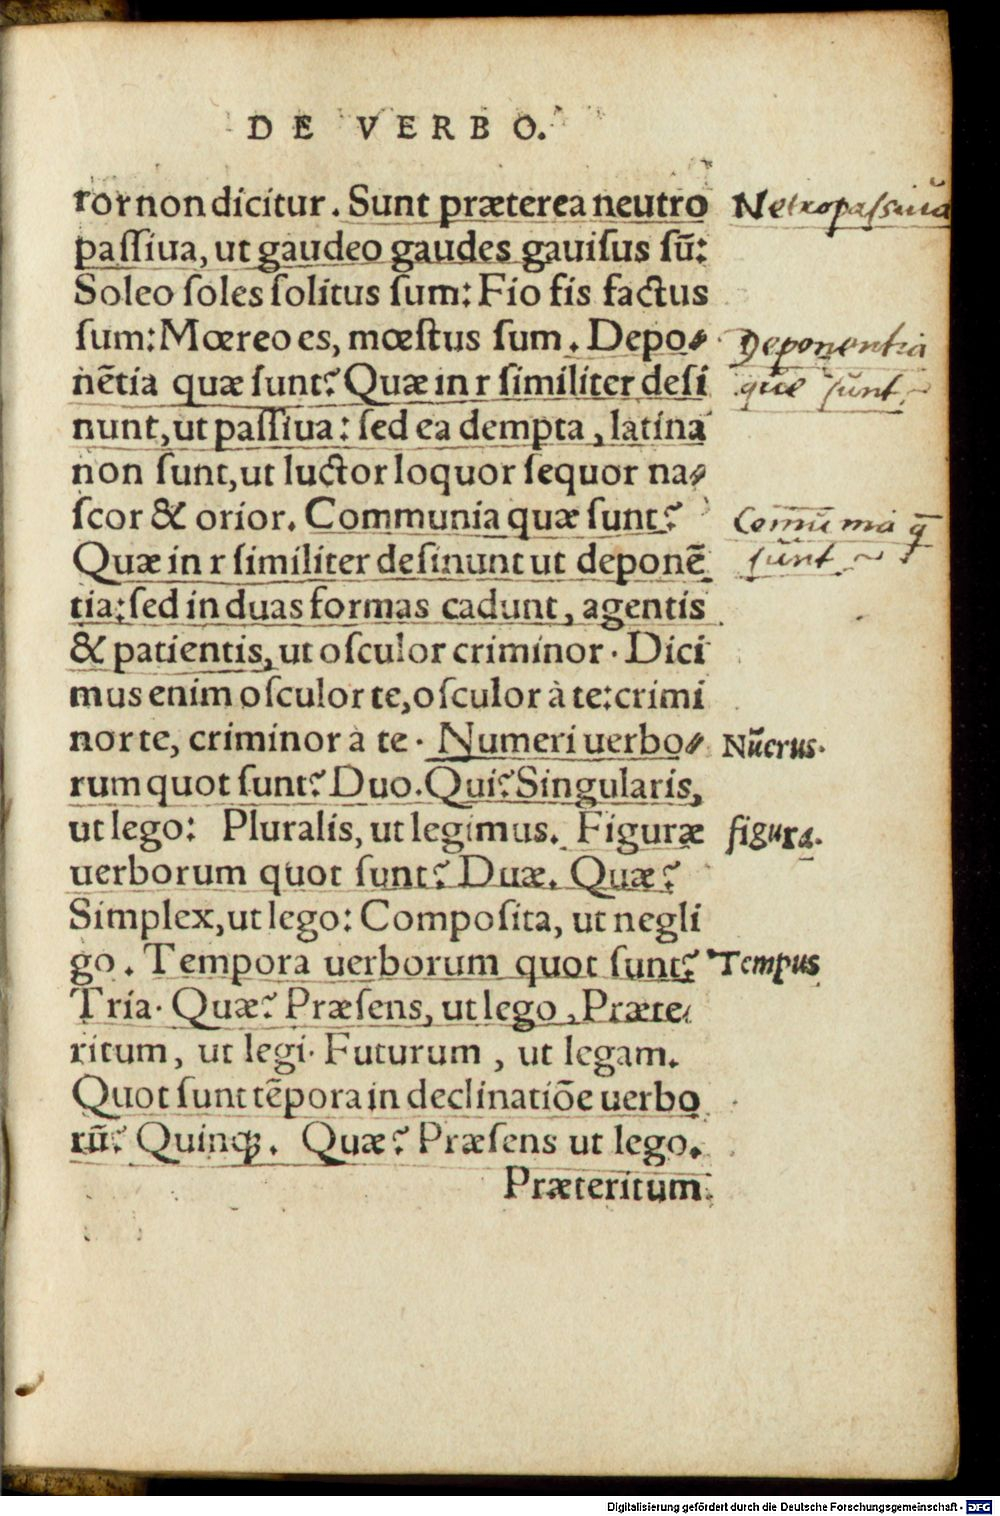 DE VERBO.
ror non dicitur. Sunt præterea neutro
paſſiua, ut gaudeo gaudes gauiſus sū:
Soleo ſoles ſolitus ſum: Fio fis factus
ſum: Mœreo es, mœſtus ſum. Depo⸗
nētia quæ ſunt? Quæ in r ſimiliter deſi
nunt, ut paſſiua: ſed ea dempta, latina
non ſunt, ut luctor loquor ſequor na⸗
ſcor & orior. Communia quæ ſunt?
Quæ in r ſimiliter deſinunt ut deponē
tia: ſed in duas formas cadunt, agentis
& patientis, ut oſculor criminor. Dici
mus enim oſculor te, oſculor à te: crimi
nor te, criminor à te. Numeri uerbo⸗
rum quot ſunt? Duo. Qui? Singularis,
ut lego: Pluralis, ut legimus. Figuræ
uerborum quot ſunt? Duæ. Quæ?
Simplex, ut lego: Compoſita, ut negli
go. Tempora uerborum quot ſunt?
Tria. Quæ? Præſens, ut lego, Præte⸗
ritum, ut legi. Futurum, ut legam.
Quot ſunt tēpora in declinatiōe uerbo
rū? Quinq́ꝫ. Quæ? Præſens ut lego.
Præteritum
Netropaſsiua
Deponentia
que ſunt
Comūnia q̄
ſunt
Nūerus.
figura.
Tempus
Digitalisierung gefördert durch die Deutsche Forschungsgemeinschaft - DFG